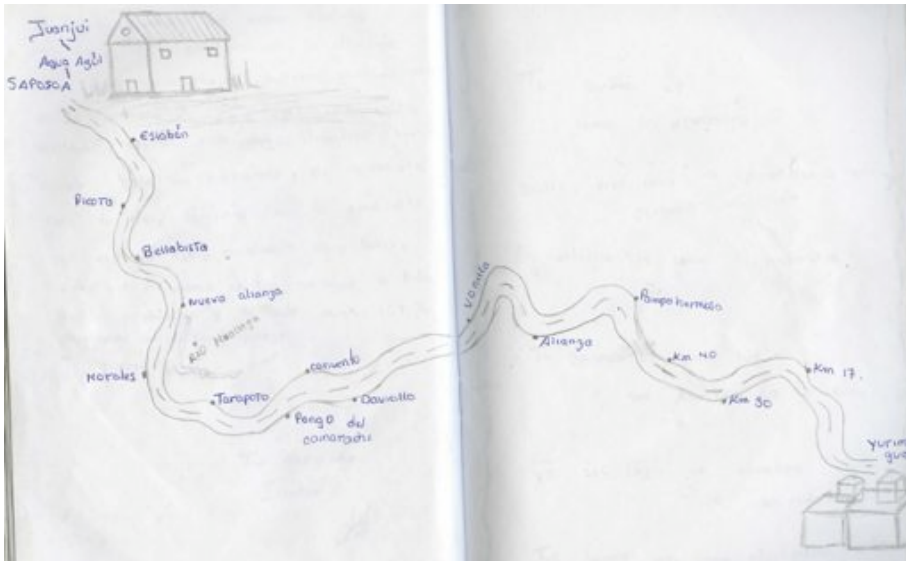 Juanjui
Agua Azul
SAPOSOA
Eslabón
Picota
Bellabista
nueva alianza
Morales
Tarapoto
convento
Pongo del
cainarachi
Davidllo
Alianza
Pampa hermosa
Km 40
Km 30
Km 17